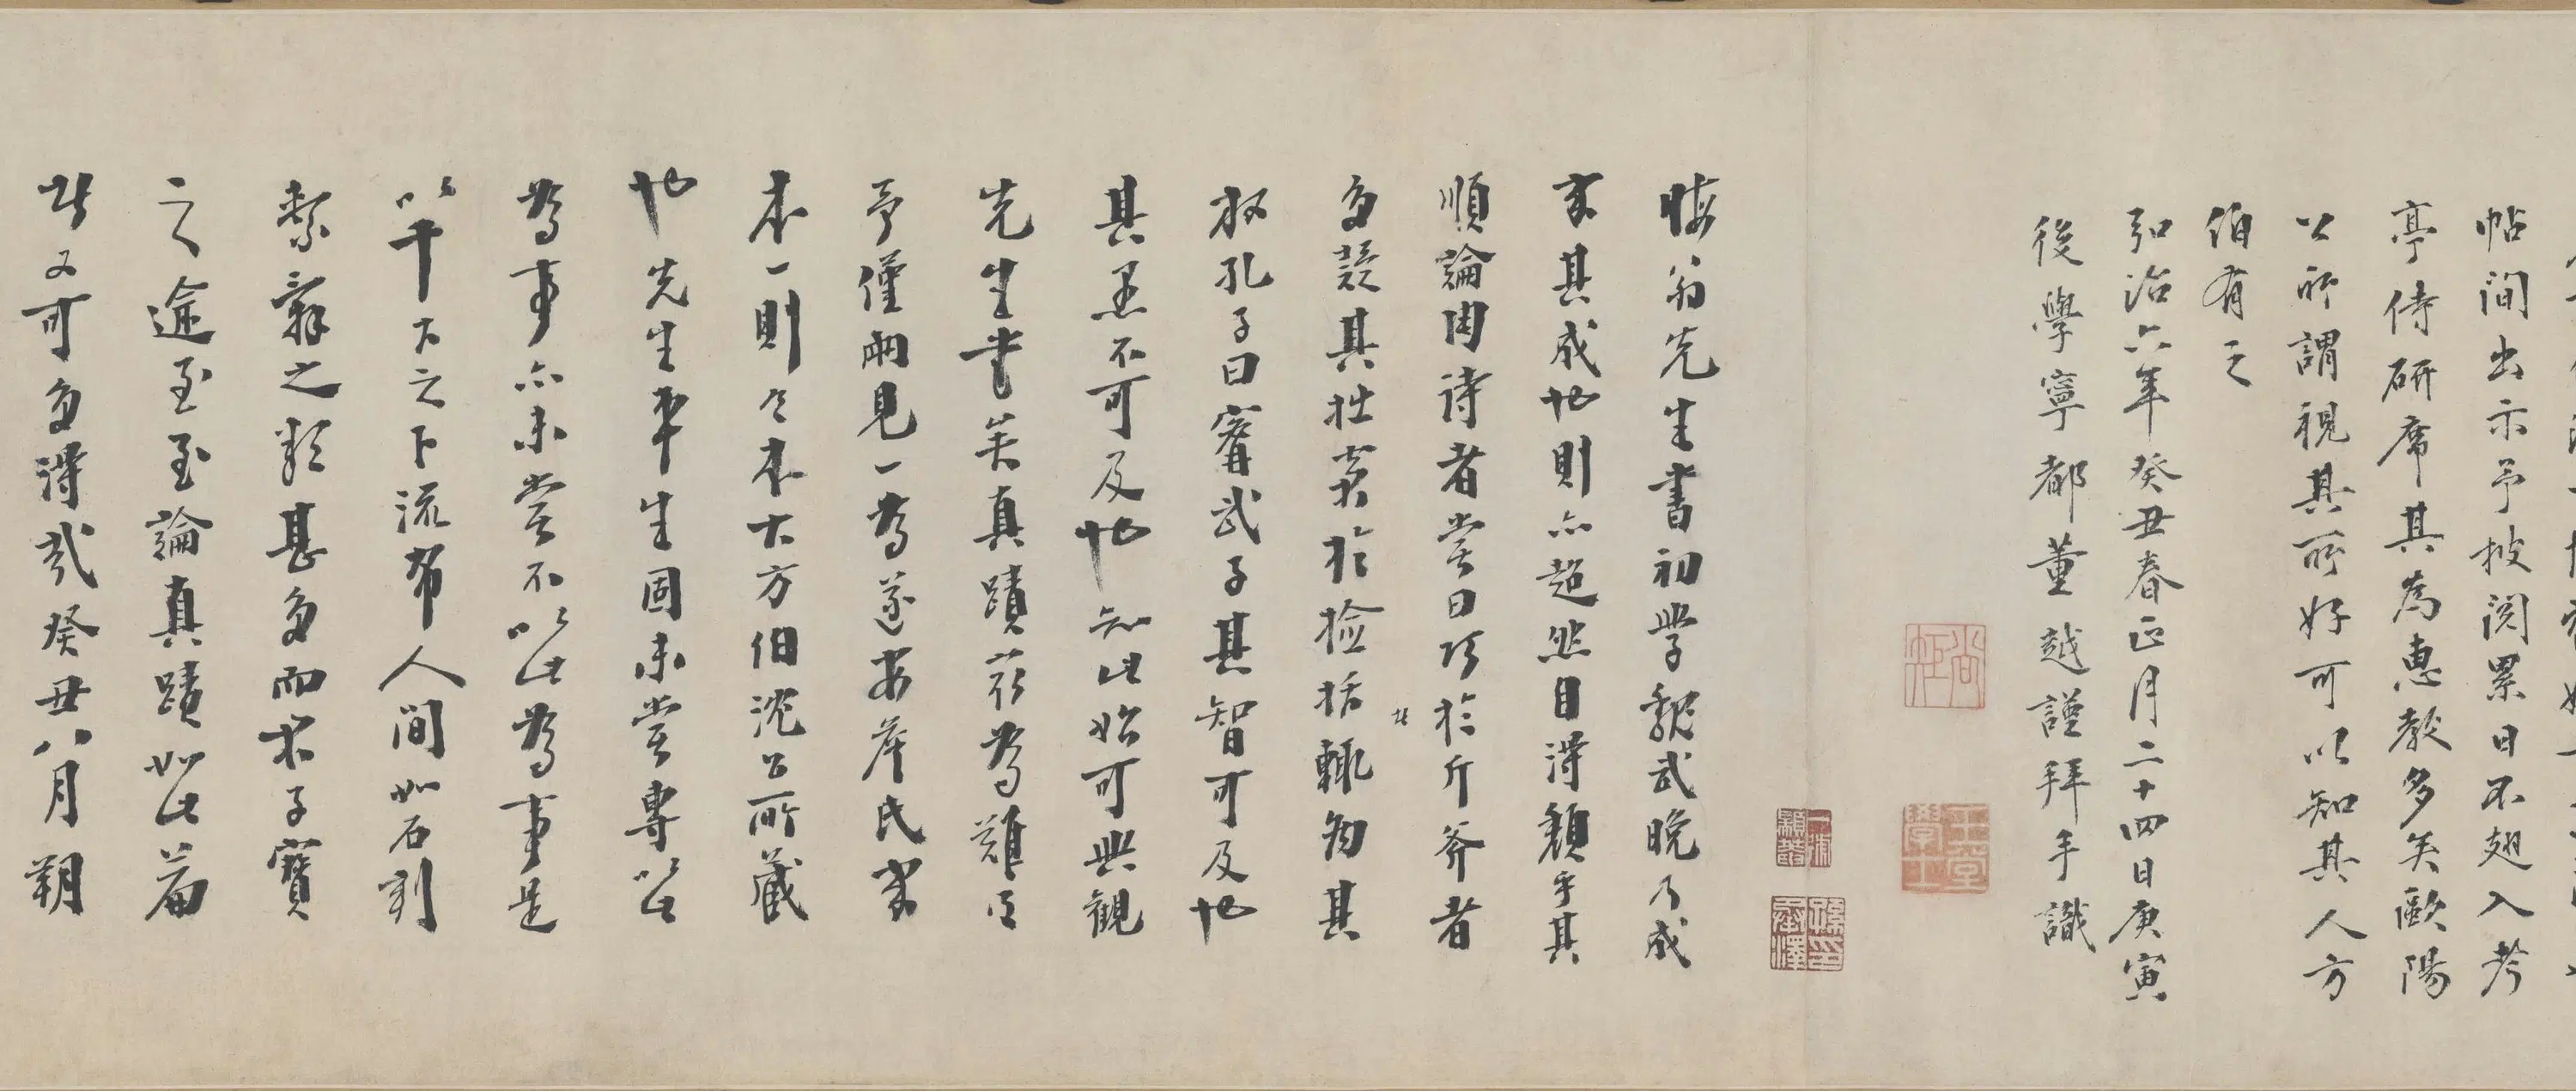 帖間出示予披閱累日不翅入考
亭侍研席其為惠教多矣歐陽
公所謂視其所好可以知其人方
伯有之
弘治六年癸丑春正月二十四日庚寅
後學寧都董越謹拜手識
尚矩
玉堂學士
晦翁先生書初學魏武晚乃成
家其成也則亦超然自得類乎其
順論周詩者嘗曰巧於斤斧者
多疑其拙窘於檢括輒為其
放孔子曰甯武子其智可及也
其愚不可及也知此始可與觀
先生書矣真蹟茲為難得
予僅兩見一為遂安詹氏家
本一則今本大方伯沈公所藏
也先生平生固未嘗專以此
為事亦未嘗不以此為事是
以千古之下流布人間如石刻
縶辭之類甚多而朱子寶
之途至論真蹟如此篇
豈又可多得哉癸丑八月朔